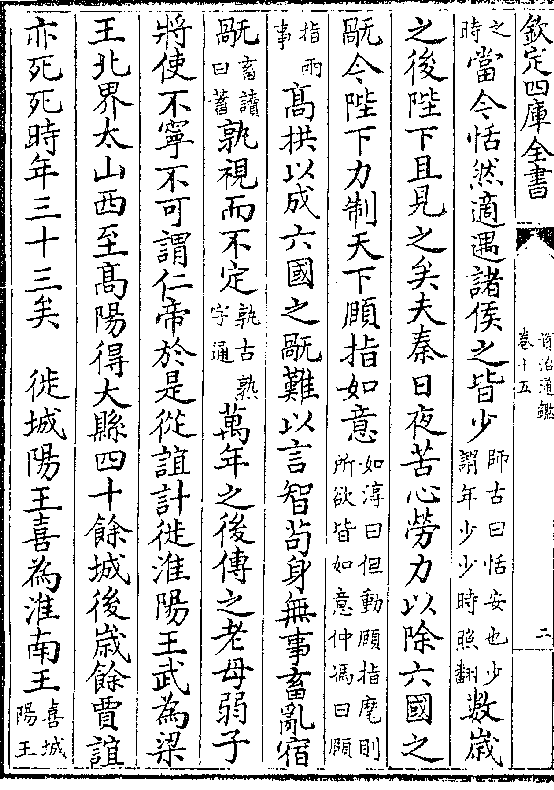 欽定四庫全書 資治通鑑 卷十五 二
之時當今恬然適遇諸侯之皆少師古曰恬安也少謂年少少時照翻數歲
之後陛下且見之矣夫秦日夜苦心勞力以除六國之
旤今陛下力制天下頤指如意如淳曰但動頤指麾則所欲皆如意仲馮曰頤
指兩事髙拱以成六國之旤難以言智苟身無事畜亂宿
旤畜讀曰蓄孰視而不定孰古熟字通萬年之後傳之老母弱子
將使不寧不可謂仁帝於是從誼計徙淮陽王武為梁
王北界太山西至髙陽得大縣四十餘城後歲餘賈誼
亦死死時年三十三矣 徙城陽王喜為淮南王喜城陽王